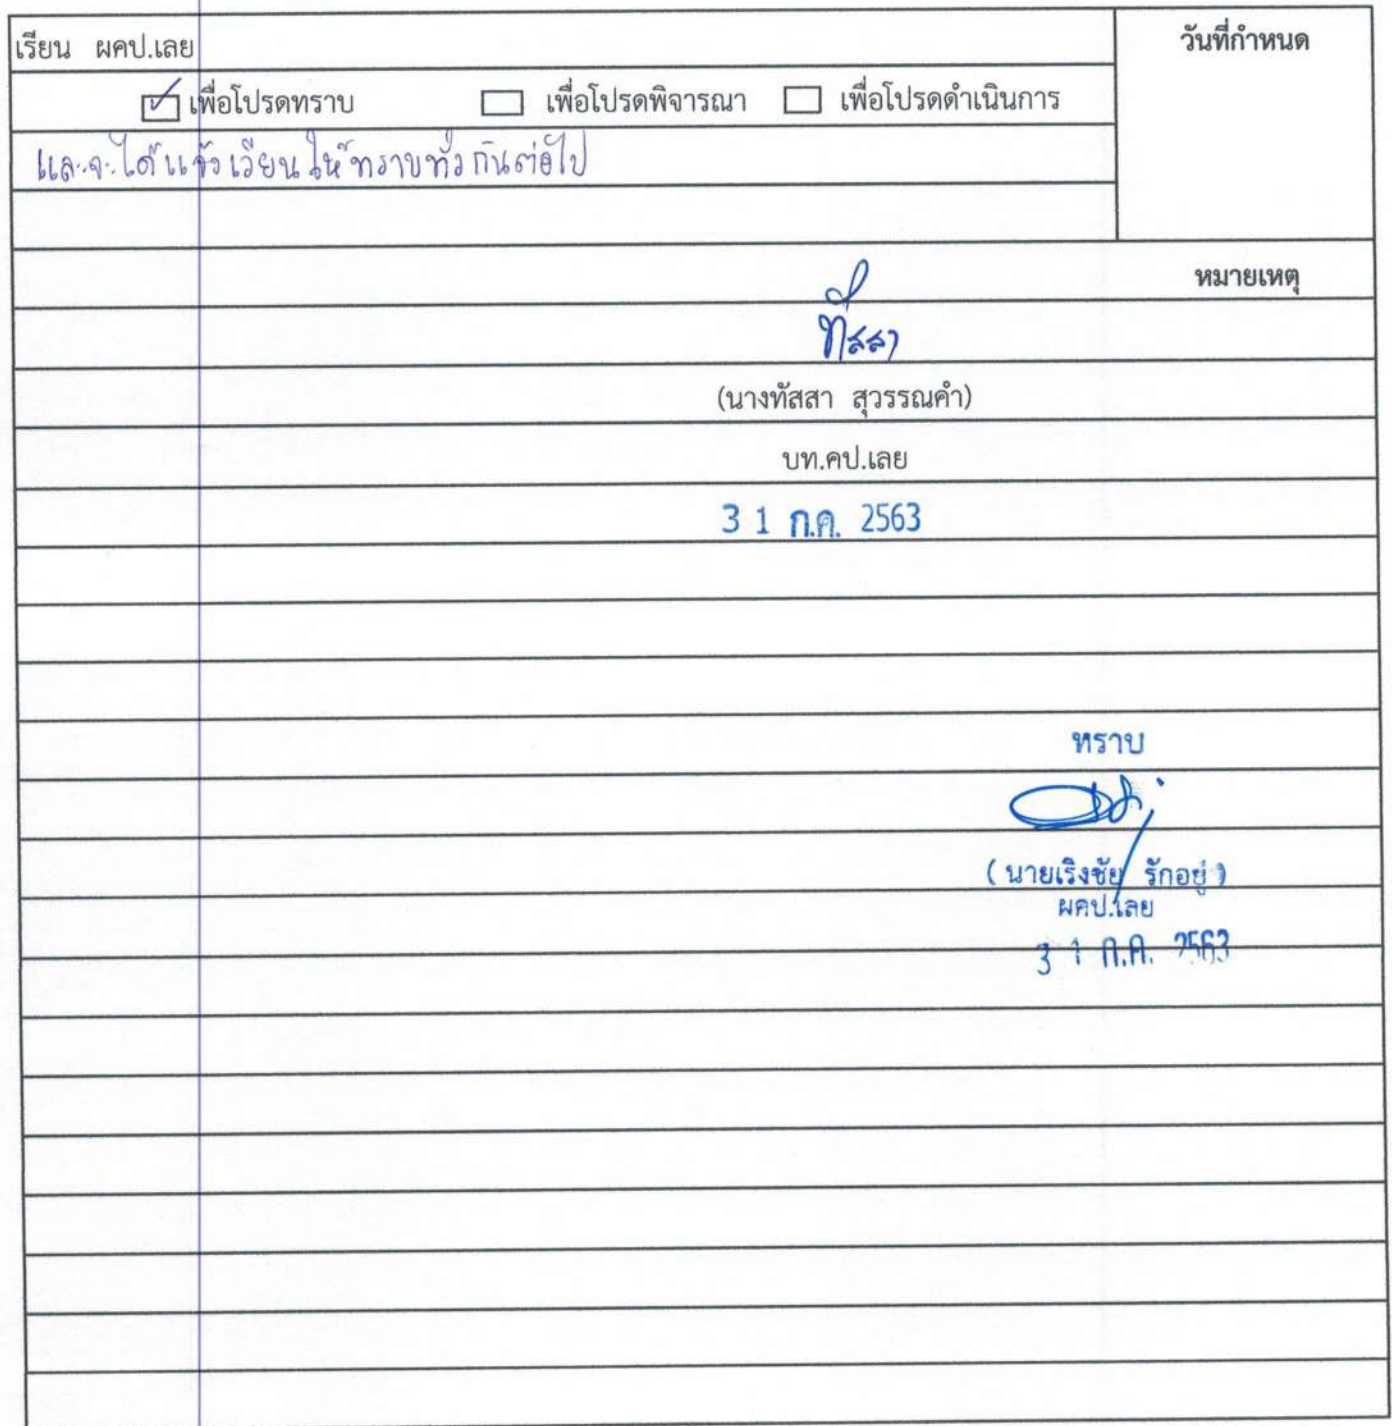 เรียน ผคป.เลย
วันที่กำหนด
เพื่อโปรดทราบ เพื่อโปรดพิจารณา เพื่อโปรดดำเนินการ
และจะได้แจ้งเวียนให้ทราบทั่วกันต่อไป
หมายเหตุ
ทัสสา
(นางทัสสา สุวรรณคำ)
บท.คป.เลย
3 1 ก.ค. 2563
ทราบ
( นายเริงชัย รักอยู่ )
ผคป.เลย
3 1 ก.ค. 2563